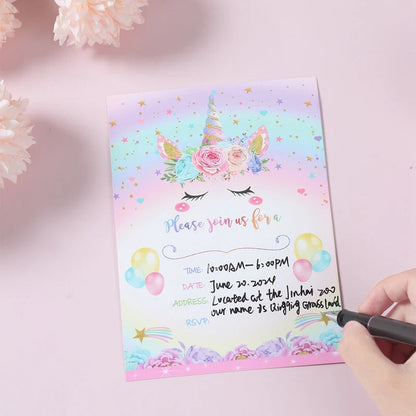 Please join us for a
TIME: 10:00AM-6:00PM
DATE: June 20.2024
ADDRESS: Located at the Jinhui zoo
our name is Qingqing Grassland
RSVP: